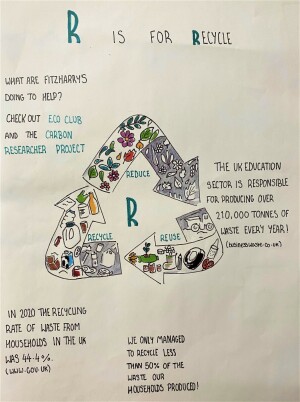 R IS FOR RECYCLE
WHAT ARE FITZHARRYS
DOING TO HELP?
CHECK OUT ECO CLUB
AND THE CARBON
RESEARCHER PROJECT
REDUCE
R
RECYCLE
REUSE
THE UK EDUCATION
SECTOR IS RESPONSIBLE
FOR PRODUCING OVER
210,000 TONNES OF
WASTE EVERY YEAR!
(businesswaste.co.uk)
IN 2020 THE RECYCLING
RATE OF WASTE FROM
HOUSEHOLDS IN THE UK
WAS 44.4%.
(WWW.GOV.UK)
WE ONLY MANAGED
TO RECYCLE LESS
THAN 50% OF THE
WASTE OUR
HOUSEHOLDS PRODUCED!